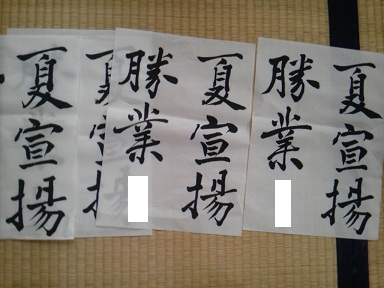 夏宣揚
勝業
夏宣揚
勝業
夏宣揚